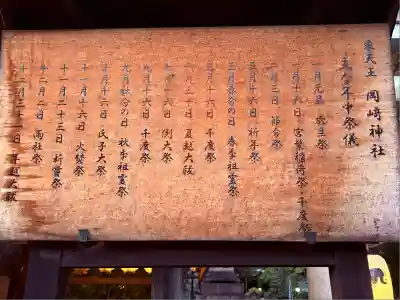 東天王 岡崎神社
主な年中祭儀
一月元旦 歳旦祭
一月十六日 宮繁稲荷祭・千度祭
二月三日 節分祭
三月十六日 祈年祭
三月春分の日 春季祖霊祭
五月十六日 千度祭
六月三十日 夏越大祓
十六日 例大祭
九月十六日 千度祭
九月秋分の日 秋季祖霊祭
十月十六日 氏子大祭
十一月十六日 火焚祭
十一月二十三日 新嘗祭
十二月二日 高社祭
十二月三十一日 年越大祓